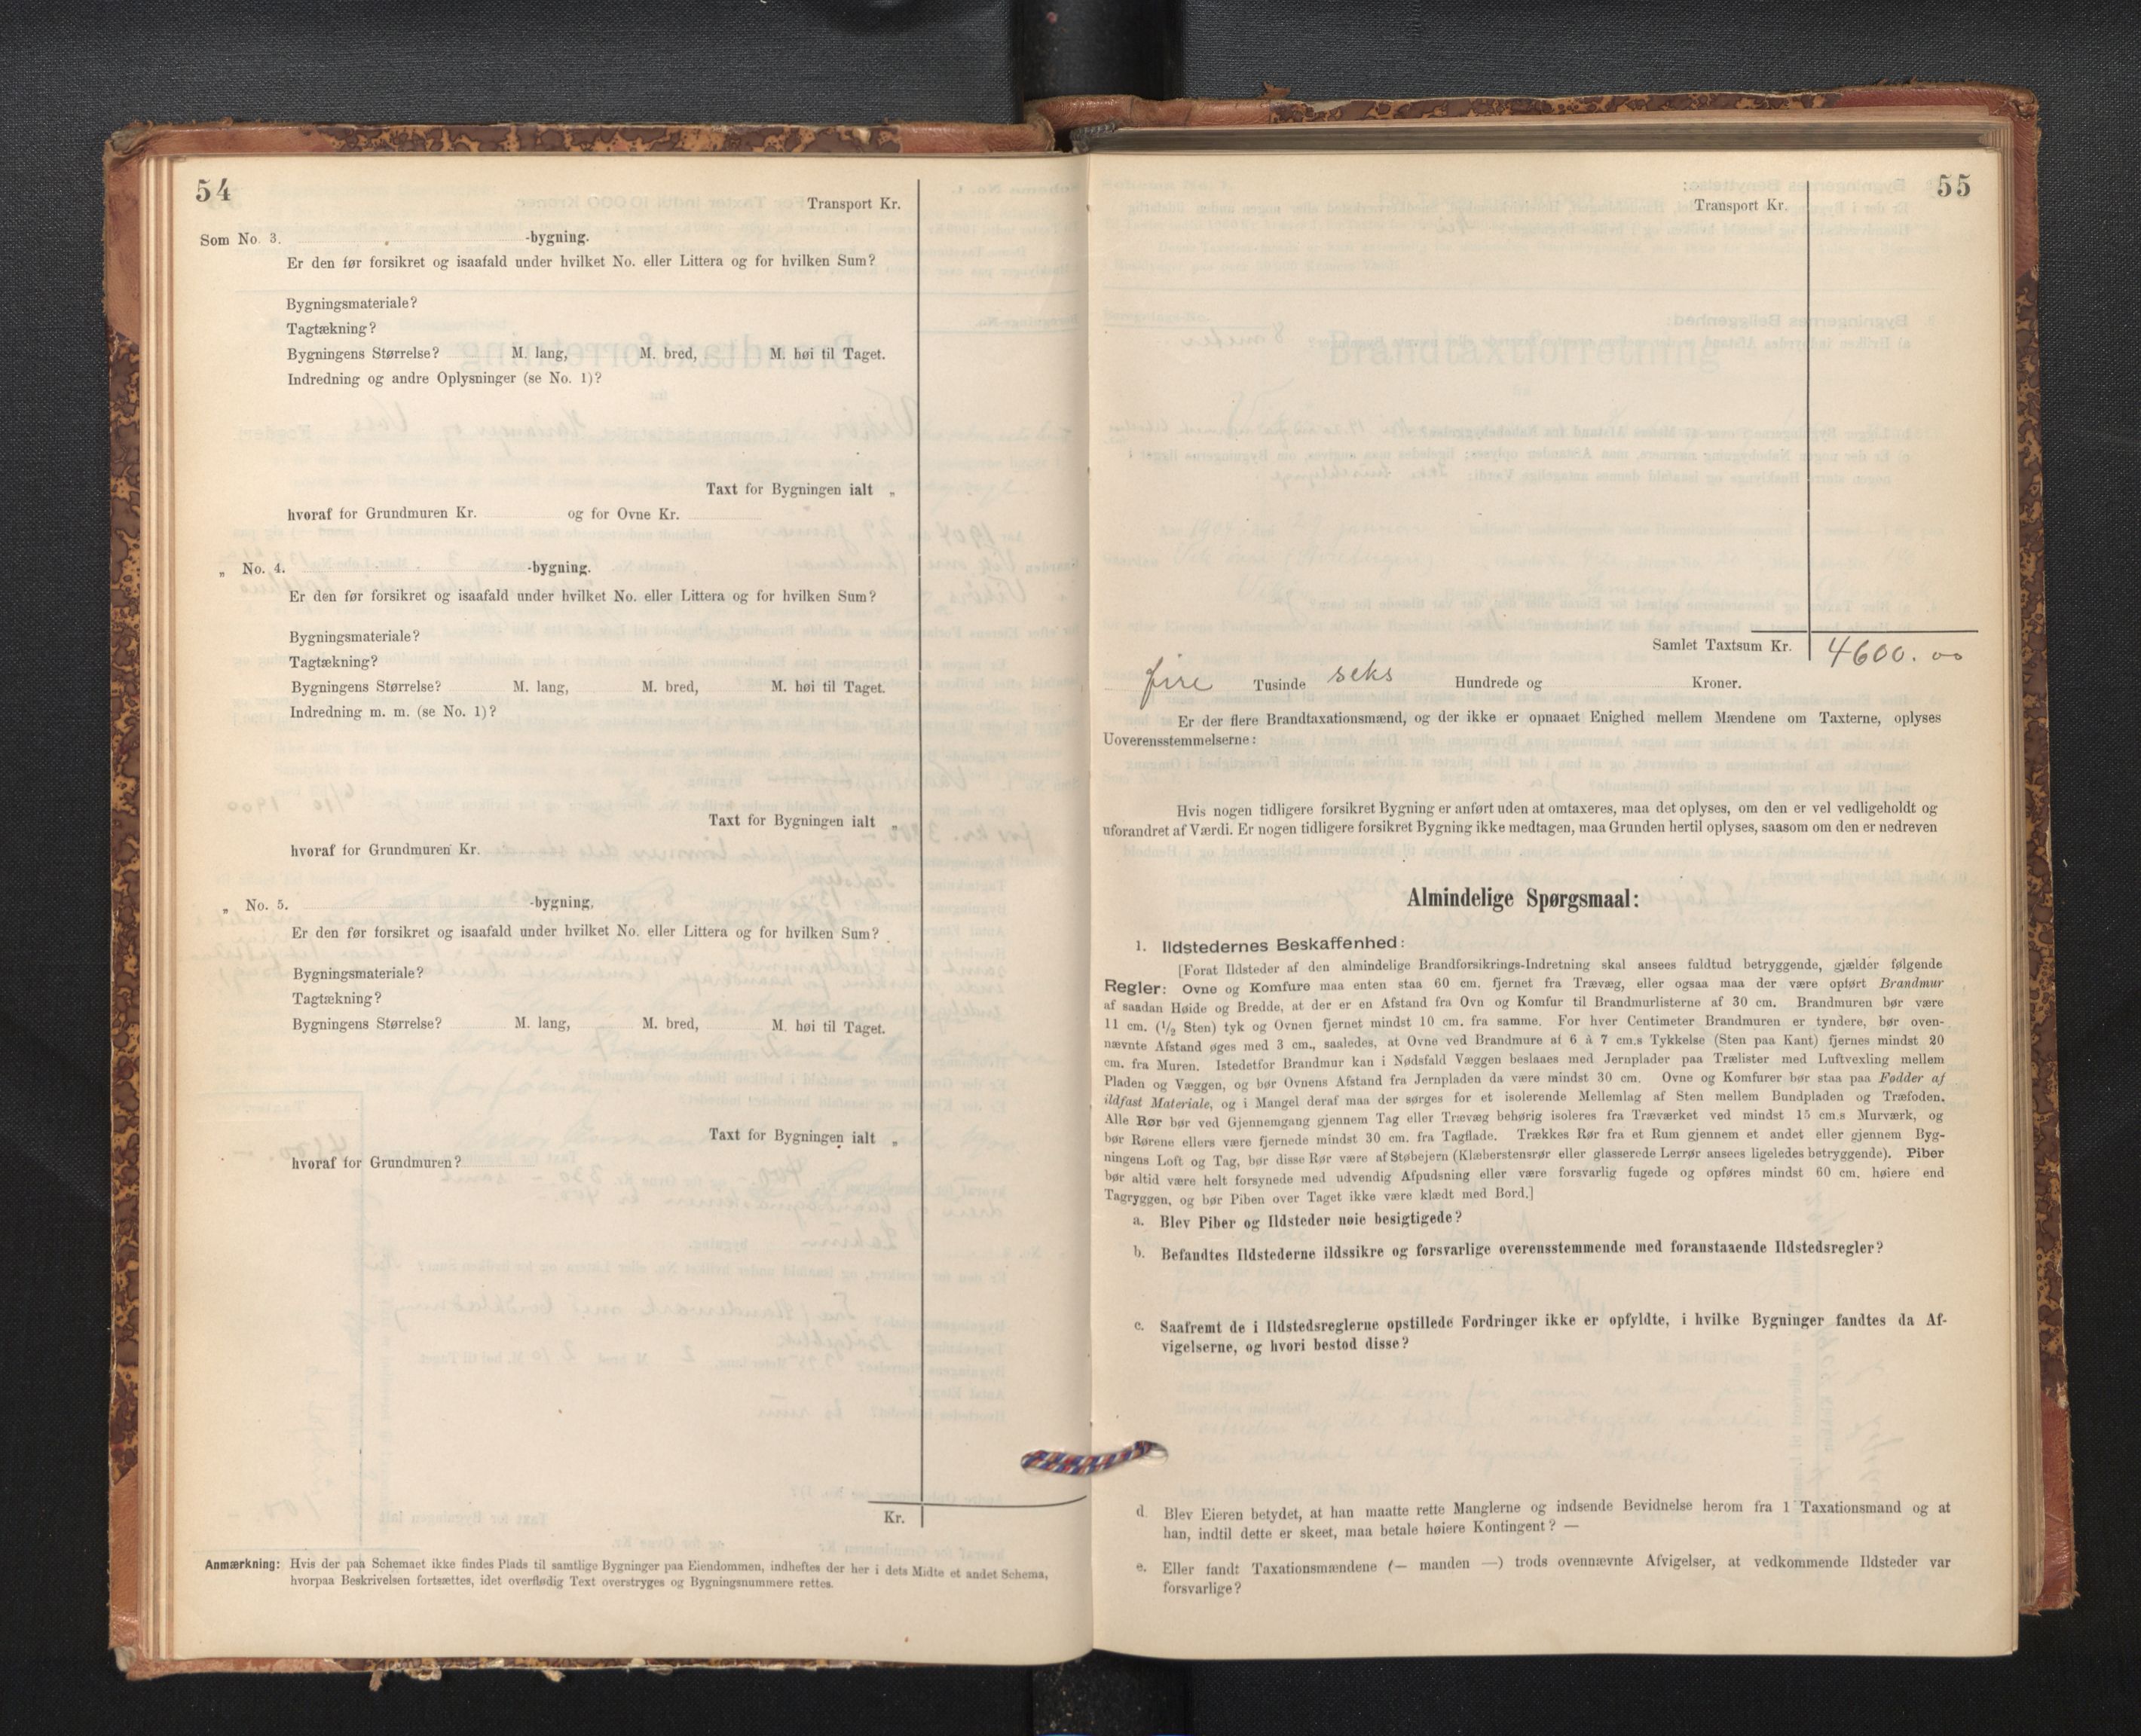 54
Transport Kr.
Som No. 3. -bygning.
Er den før forsikret og isaafald under hvilket No. eller Littera og for hvilken Sum?
Bygningsmateriale?
Tagtækning?
Bygningens Størrelse? M. lang, M. bred, M. høi til Taget.
Indredning og andre Oplysninger (se No. 1)?
Taxt for Bygningen ialt „
hvoraf for Grundmuren Kr. og for Ovne Kr.
„ No. 4. -bygning.
Er den før forsikret og isaafald under hvilket No. eller Littera og for hvilken Sum?
Bygningsmateriale?
Tagtækning?
Bygningens Størrelse? M. lang, M. bred, M. høi til Taget.
Indredning m. m. (se No. 1)?
Taxt for Bygningen ialt „
hvoraf for Grundmuren Kr.
„ No. 5. -bygning,
Er den før forsikret og isaafald under hvilket No. eller Littera og for hvilken Sum?
Bygningsmateriale?
Tagtækning?
Bygningens Størrelse? M. lang, M. bred, M. høi til Taget.
Taxt for Bygningen ialt „
hvoraf for Grundmuren?
Kr.
Anmærkning: Hvis der paa Schemaet ikke findes Plads til samtlige Bygninger paa Eiendommen, indheftes der her i dets Midte et andet Schema,
hvorpaa Beskrivelsen fortsættes, idet overflødig Text overstryges og Bygningsnummere rettes.
55
Transport Kr.
Samlet Taxtsum Kr. 4600.00
fire Tusinde seks Hundrede og Kroner.
Er der flere Brandtaxationsmænd, og der ikke er opnaaet Enighed mellem Mændene om Taxterne, oplyses
Uoverensstemmelserne:
Hvis nogen tidligere forsikret Bygning er anført uden at omtaxeres, maa det oplyses, om den er vel vedligeholdt og
uforandret af Værdi. Er nogen tidligere forsikret Bygning ikke medtagen, maa Grunden hertil oplyses, saasom om den er nedreven
Almindelige Spørgsmaal:
1. Ildstedernes Beskaffenhed:
[Forat Ildsteder af den almindelige Brandforsikrings-Indretning skal ansees fuldtud betryggende, gjælder følgende
Regler: Ovne og Komfure maa enten staa 60 cm. fjernet fra Trævæg, eller ogsaa maa der være opført Brandmur
af saadan Høide og Bredde, at der er en Afstand fra Ovn og Komfur til Brandmurlisterne af 30 cm. Brandmuren bør være
11 cm. (1/2 Sten) tyk og Ovnen fjernet mindst 10 cm. fra samme. For hver Centimeter Brandmuren er tyndere, bør oven-
nævnte Afstand øges med 3 cm., saaledes, at Ovne ved Brandmure af 6 à 7 cm.s Tykkelse (Sten paa Kant) fjernes mindst 20
cm. fra Muren. Istedetfor Brandmur kan i Nødsfald Væggen beslaaes med Jernplader paa Trælister med Luftvexling mellem
Pladen og Væggen, og bør Ovnens Afstand fra Jernpladen da være mindst 30 cm. Ovne og Komfurer bør staa paa Fødder af
ildfast Materiale, og i Mangel deraf maa der sørges for et isolerende Mellemlag af Sten mellem Bundpladen og Træfoden.
Alle Rør bør ved Gjennemgang gjennem Tag eller Trævæg behørig isoleres fra Træværket ved mindst 15 cm.s Murværk, og
bør Rørene ellers være fjernede mindst 30 cm. fra Tagflade. Trækkes Rør fra et Rum gjennem et andet eller gjennem Byg-
ningens Loft og Tag, bør disse Rør være af Støbejern (Klæberstensrør eller glasserede Lerrør ansees ligeledes betryggende). Piber
bør altid være helt forsynede med udvendig Afpudsning eller være forsvarlig fugede og opføres mindst 60 cm. høiere end
Tagryggen, og bør Piben over Taget ikke være klædt med Bord.]
a. Blev Piber og Ildsteder nøie besigtigede?
b. Befandtes Ildstederne ildssikre og forsvarlige overensstemmende med foranstaaende Ildstedsregler?
c. Saafremt de i Ildstedsreglerne opstillede Fordringer ikke er opfyldte, i hvilke Bygninger fandtes da Af-
vigelserne, og hvori bestod disse?
d. Blev Eieren betydet, at han maatte rette Manglerne og indsende Bevidnelse herom fra 1 Taxationsmand og at
han, indtil dette er skeet, maa betale høiere Kontingent? —
e. Eller fandt Taxationsmændene (— manden —) trods ovennævnte Afvigelser, at vedkommende Ildsteder var
forsvarlige?